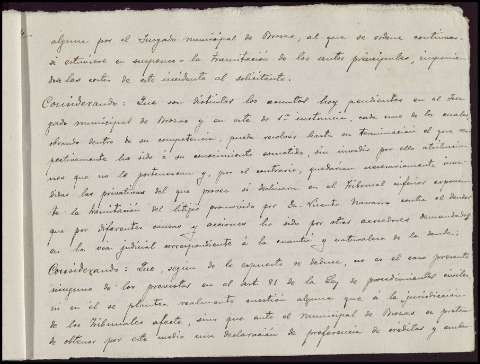 alguna por el Juzgado municipal de Brozas, al que se ordene continuar
si estuviese en suspenso la tramitación de los autos principales, imponien-
dose las costas de este incidente al solicitante.
Considerando: Que son distintos los asuntos hoy pendientes en el Juz-
gado municipal de Brozas y en este de 1ª instancia, cada uno de los cuales
obrando dentro de su competencia, puede resolver hasta su terminación el que res-
pectivamente ha sido á su conocimiento sometido, sin invadir por ello atribucio-
nes que no le pertenecen y, por el contrario, quedarian necesariamente inva-
didas las privativas del que provee si declinara en el Tribunal inferior
de la tramitación del litigio promovido por Dn Vicente Navarro contra el deudor
que por diferentes causas y acciones ha sido por otros acreedores demandado
en la via judicial correspondiente á la cuantía y naturaleza de la deuda.
Considerando: Que, segun de lo expuesto se deduce, no es el caso presente
ninguno de los previstos en el Art 81 de la Ley de procedimientos civiles
ni en él se plantea realmente cuestión alguna que á la jurisdicción
de los Tribunales afecte, sino que ante el municipal de Brozas se preten-
de obtener por este medio una declaración de preferencia de creditos y